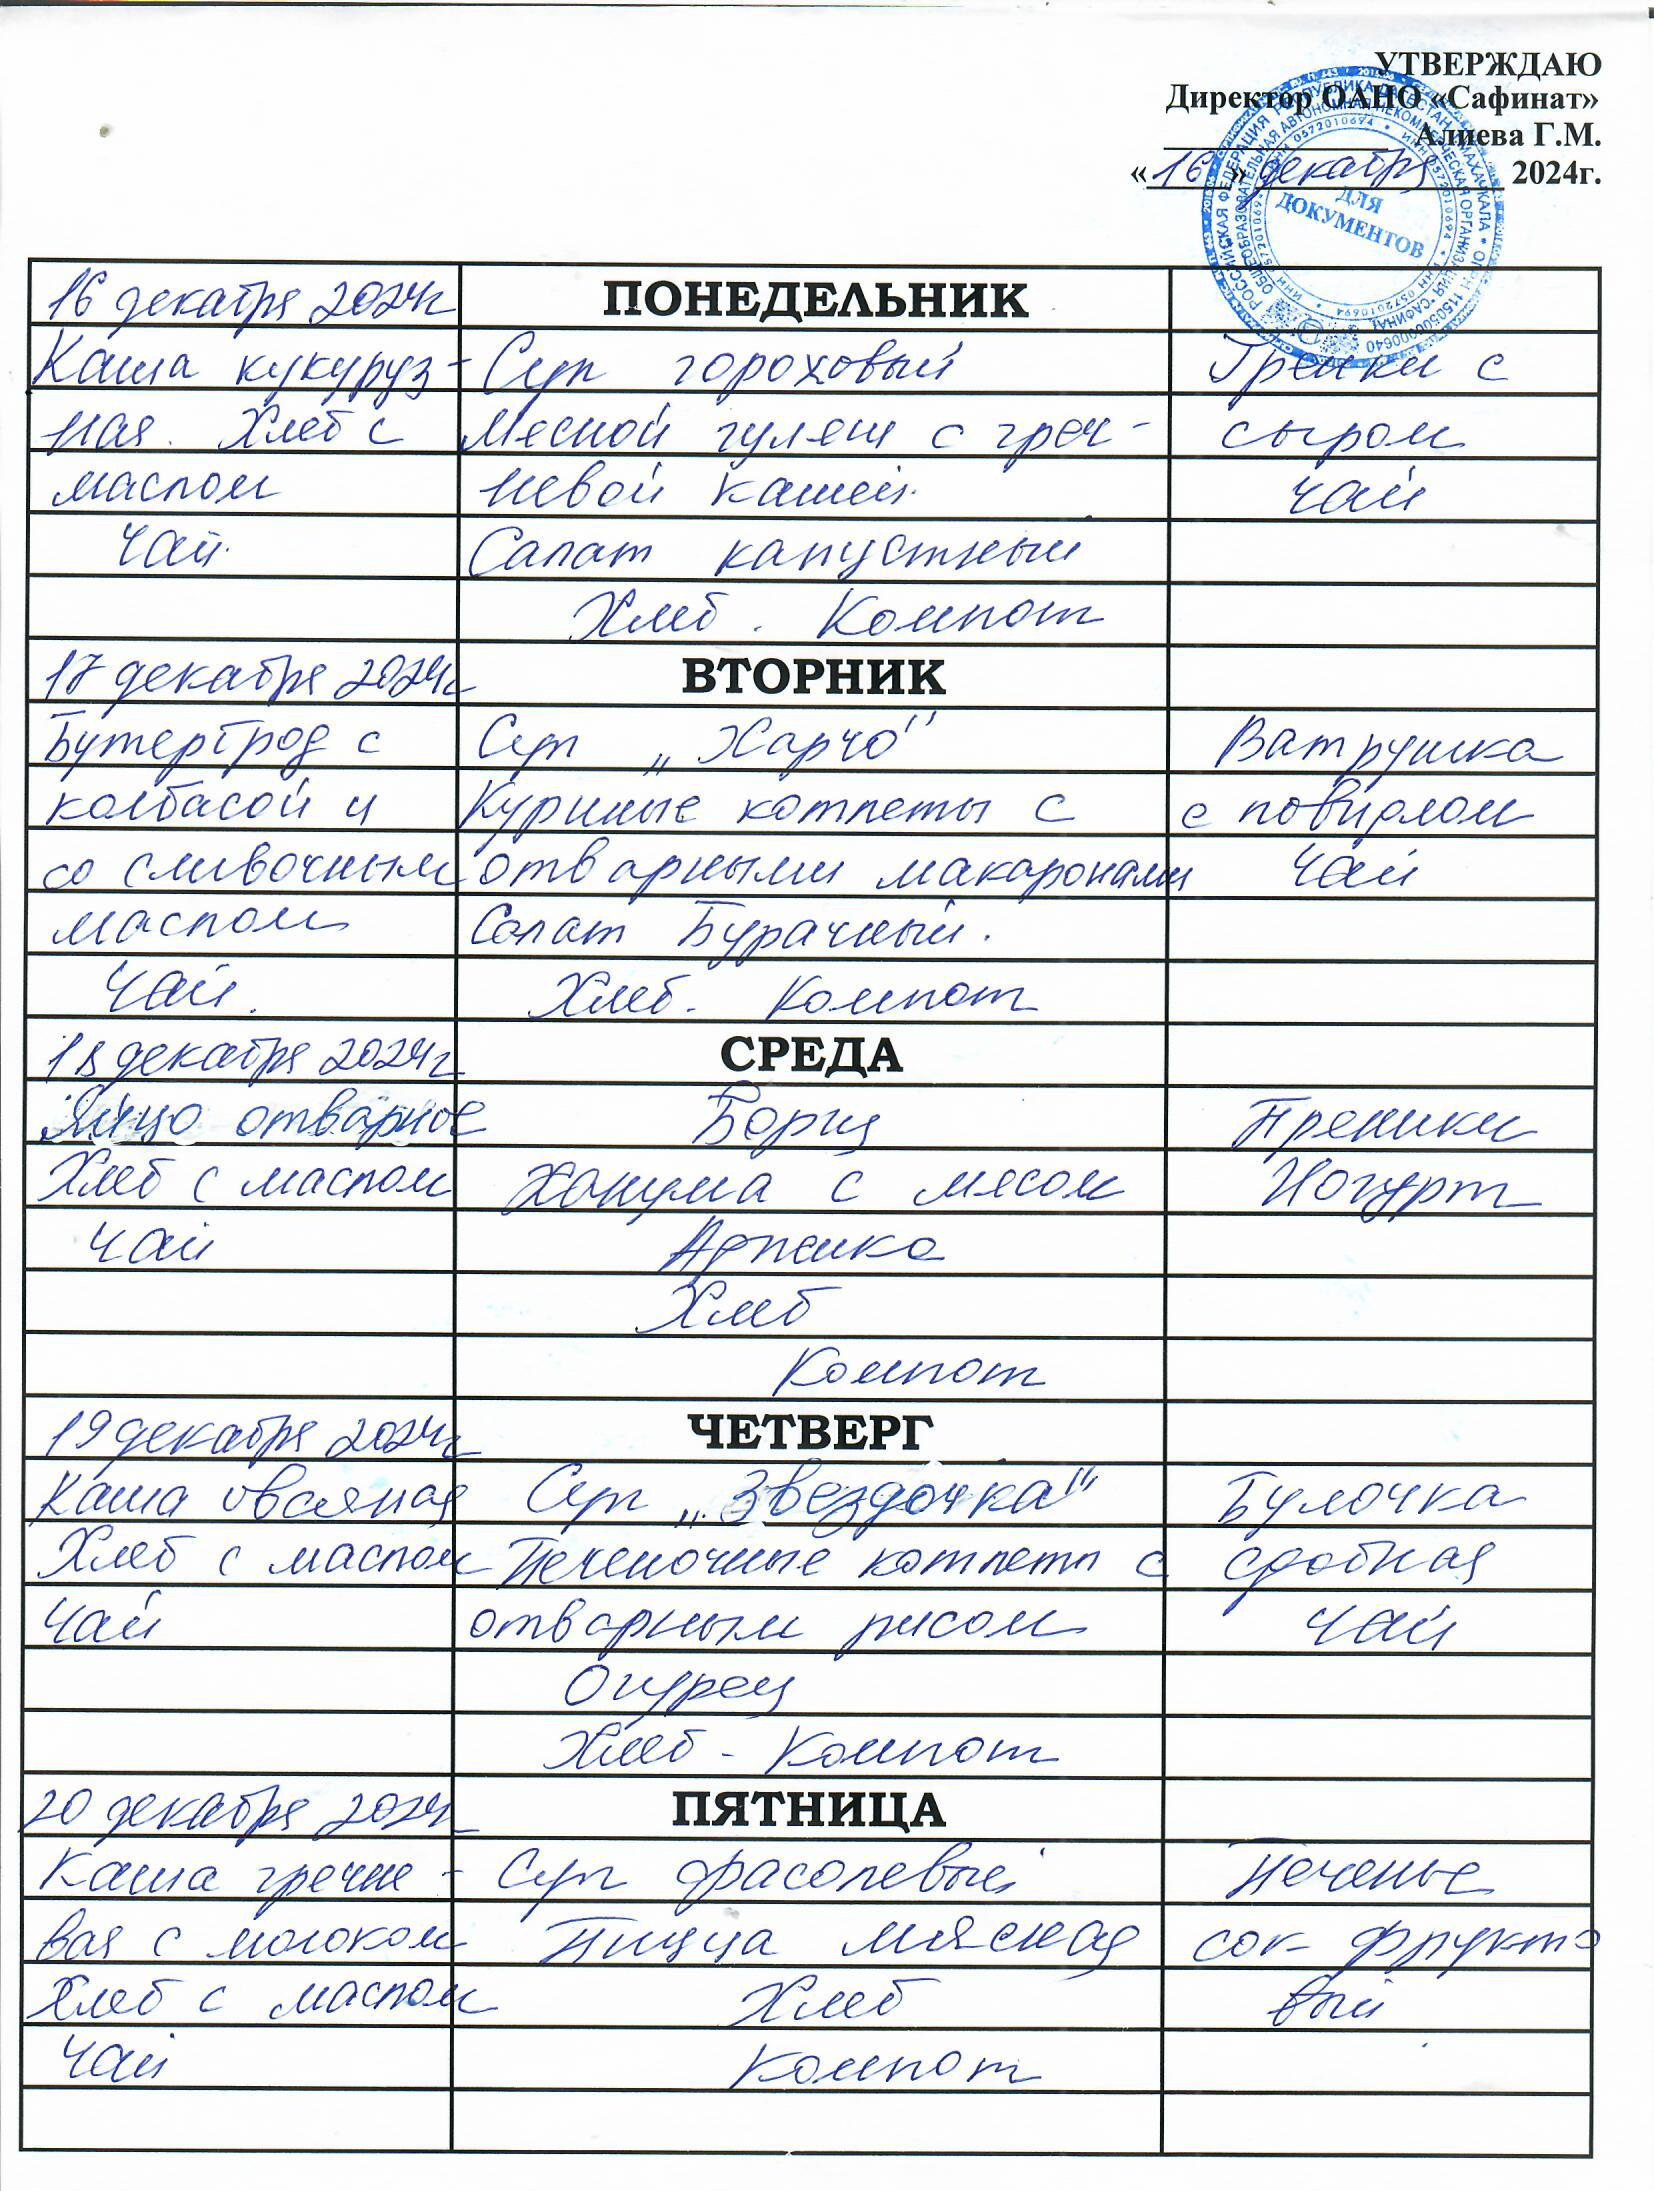 УТВЕРЖДАЮ
Директор ОАНО «Сафинат»
Алиева Г.М.
«16» декабря 2024г.
ДЛЯ
ДОКУМЕНТОВ
16 декабря 2024г ПОНЕДЕЛЬНИК
Каша кукуруз- Суп гороховый Гренки с
ная. Хлеб с Мясной гуляш с греч- сыром
маслом невой кашей. чай
Чай. Салат капустный
Хлеб. Компот
17 декабря 2024г ВТОРНИК
Бутерброд с Суп „Харчо" Ватрушка
колбасой и Куриные котлеты с с повидлом
со сливочным отварными макаронами Чай
маслом Салат Бурачный.
Чай. Хлеб. Компот
18 декабря 2024г СРЕДА
Яйцо отварное Борщ Преники
Хлеб с маслом Ханума с мясом Йогурт
чай Аджика
Хлеб
Компот
19 декабря 2024г ЧЕТВЕРГ
Каша овсяная Суп „Звездочка" Булочка
Хлеб с маслом Печеночные котлеты с сдобная
чай отварным рисом Чай
Огурец
Хлеб - Компот
20 декабря 2024г ПЯТНИЦА
Каша гречне- Суп фасолевый Печенье
вая с молоком Пицца мясная сок фрукто
Хлеб с маслом Хлеб вый
Чай Компот